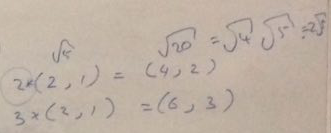 √5 √20 = √4 √5 = 2√5
2*(2, 1) = (4, 2)
3 × (2, 1) = (6, 3)